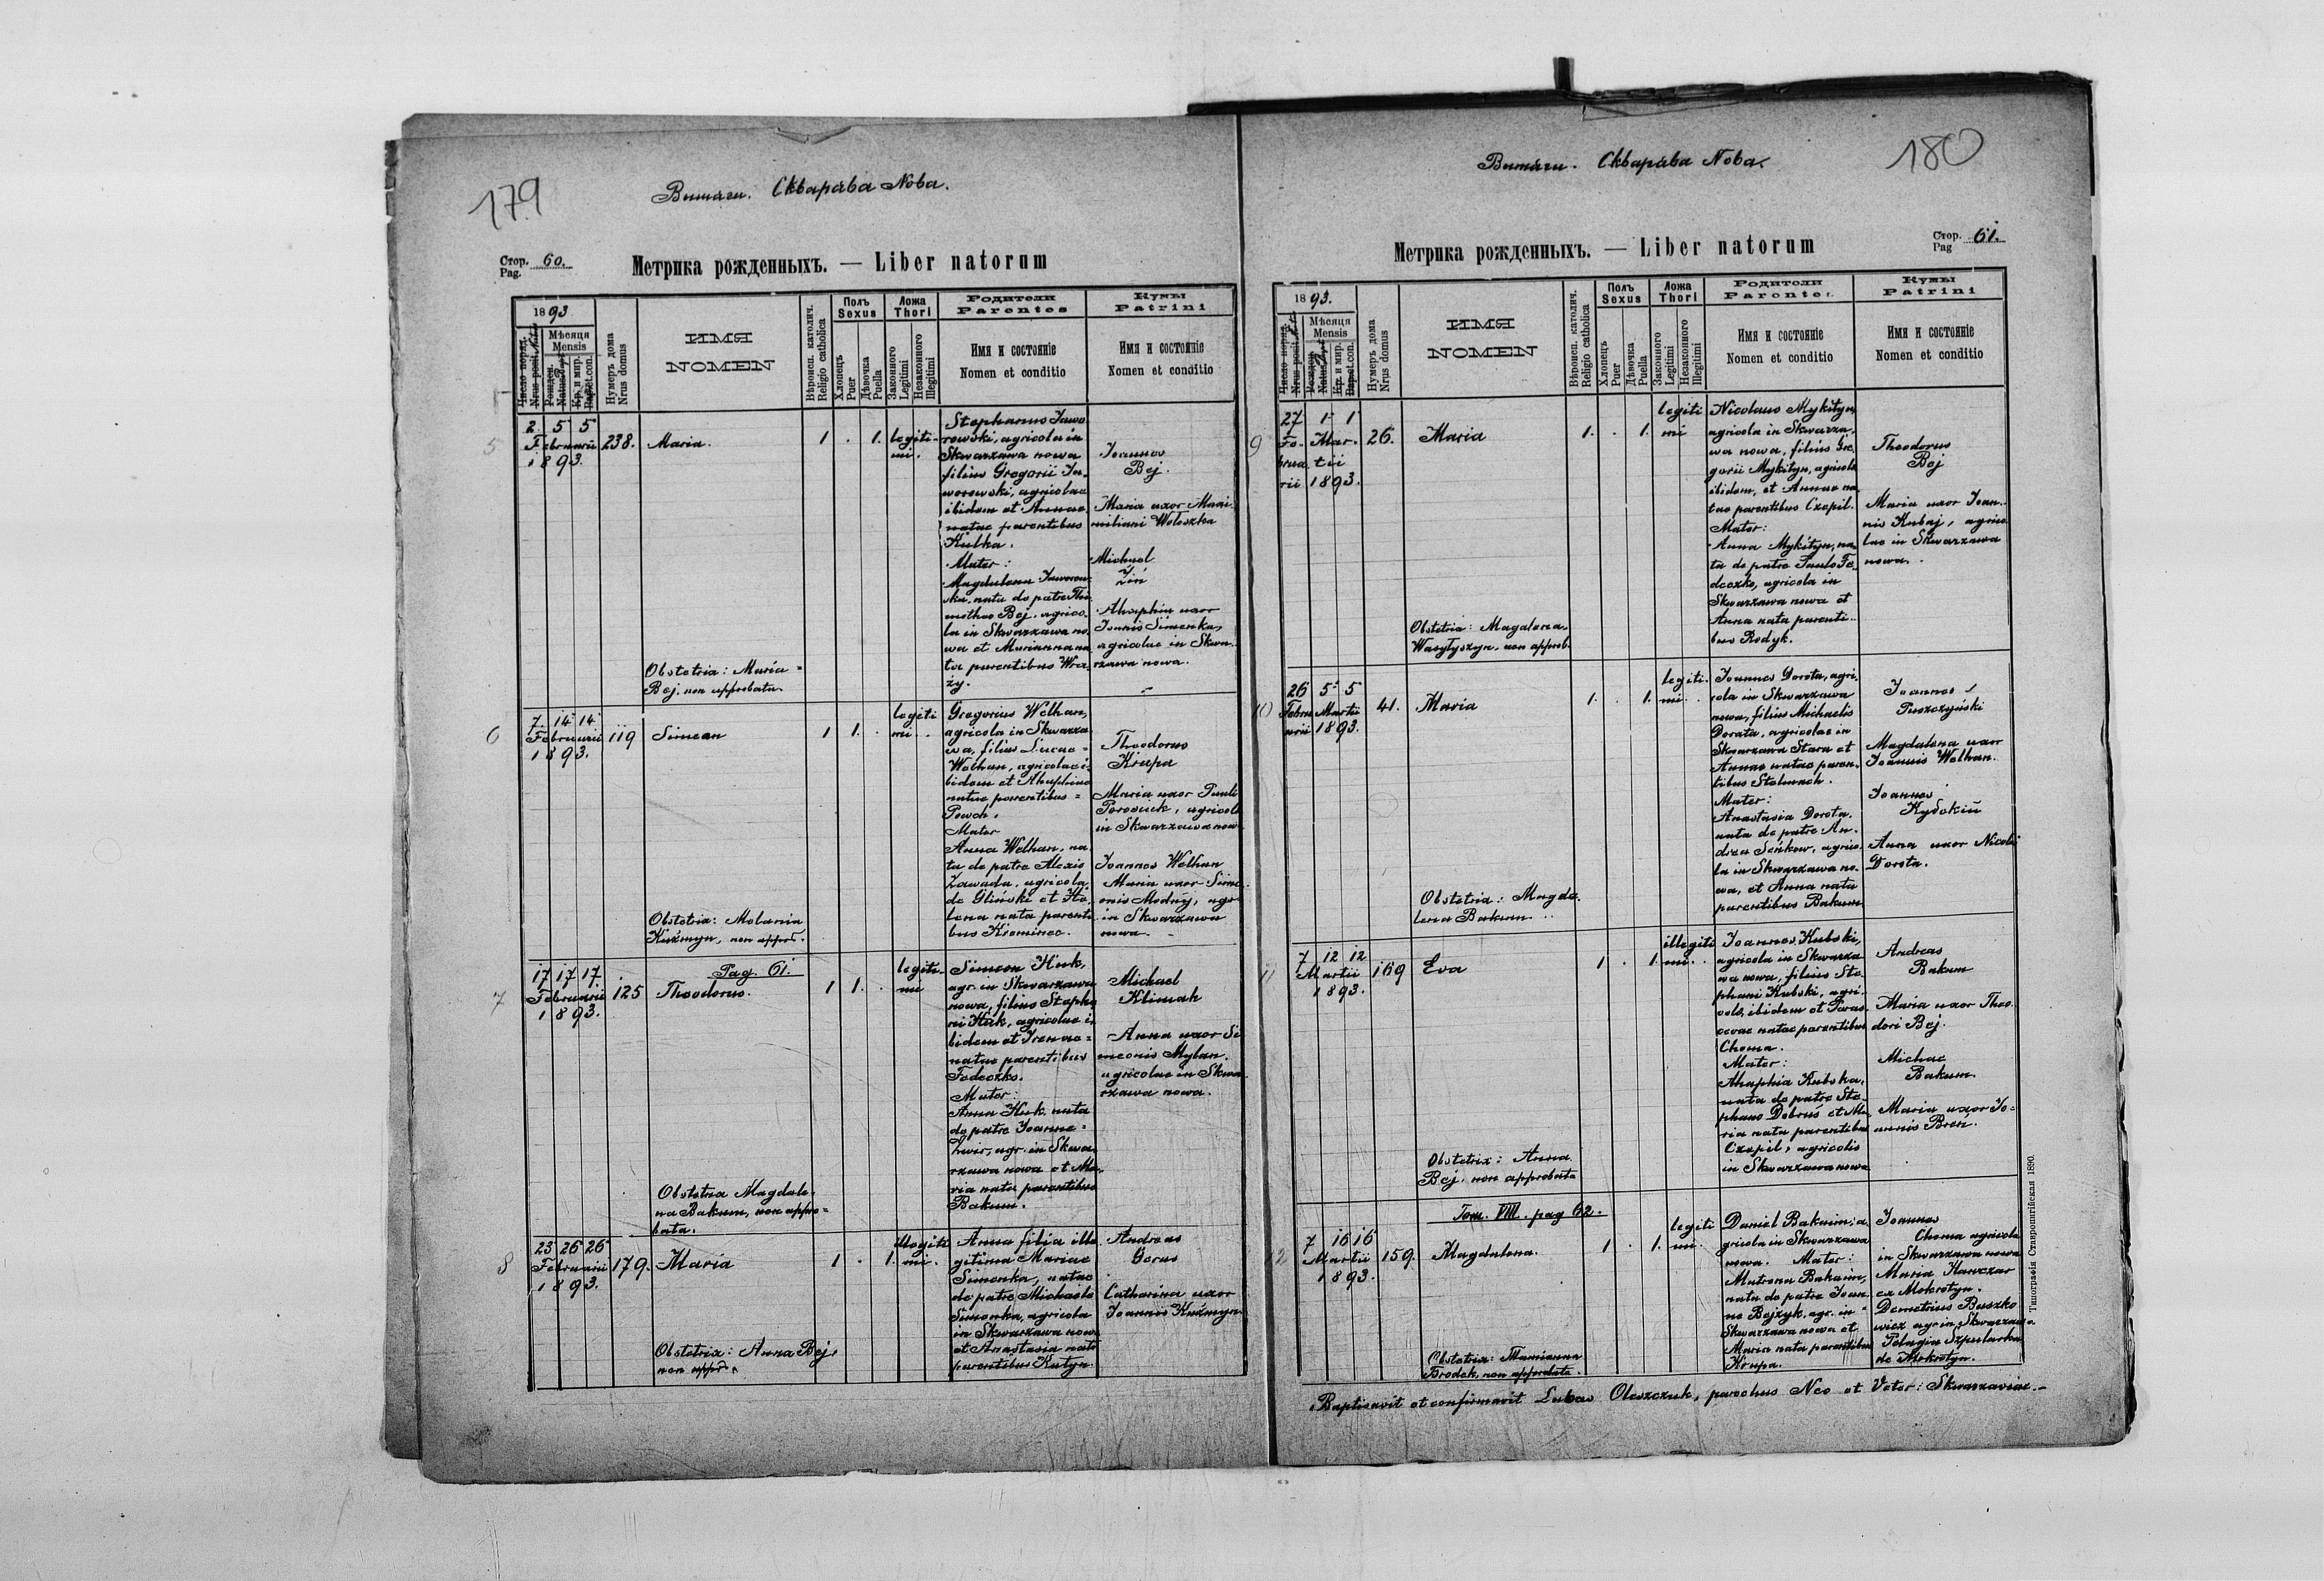 179
Витаги. Скварава Nова.
Стор.
Pag. 60.
Метрика рожденныхъ. — Liber natorum
1893
Число поряд.
Nrus posit.
Мѣсяця
Mensis
Рожден.
Natus
Кр. и мир.
Bapt. et con.
Нумеръ дома
Nrus domus
ИМЯ
NOMEN
Вѣроисп. католич.
Religio catholica
Полъ
Sexus
Хлопецъ
Puer
Дѣвочка
Puella
Ложа
Thori
Законного
Legitimi
Незаконного
Illegitimi
Родители
Parentes
Имя и состояніе
Nomen et conditio
Кумы
Patrini
Имя и состояніе
Nomen et conditio
5
2 5 5
Februarii
1893.
238.
Maria.
1 . 1.
legiti-
mi.
Stephanus Jawo
rowski, agricola in
Skwarzawa nowa
filius Gregorii Ja-
worowski, agricolae
ibidem et Annae
natae parentibus
Kulka.
Mater:
Magdalena Jaworow-
ska, nata de patre Thi
motheo Bej, agrico-
la in Skwarzawa no
wa et Marianna na
ta parentibus Wra-
ży.
Joannes
Bej.
Maria uxor Maxi
miliani Woloszka
Michael
Zin
Ahaphia uxor
Joannis Simenka,
agricolae in Skwa-
rzawa nowa.
Obstetrix: Maria
Bej. non approbata
6
7. 14 14
Februarii
1893.
119
Simeon
1 1. .
legiti
mi.
Gregorius Welhan,
agricola in Skwarza
wa, filius Lucae
Welhan, agricolae i-
bidem et Ahaphiae
natae parentibus
Powch.
Mater
Anna Welhan, na
ta de patre Alexio
Zawada, agricola
de Gliński et He-
lena nata parenti
bus Kreminec.
Theodorus
Krupa
Maria uxor Pauli
Porosiuk, agricola
in Skwarzawa now
Joannes Welhan
Maria uxor Sime
onis Modny, agr
in Skwarzawa
nowa.
Obstetrix: Melania
Kuźmyn, non approb.
7
17 17 17
Februarii
1893.
125
Pag. 61.
Theodorus.
1 1. .
legiti-
mi
Simeon Huk,
agr. in Skwarzawa
nowa, filius Stepha
ni Huk, agricolae i-
bidem et Irenae
natae parentibus
Fedeczko.
Mater:
Anna Huk nata
de patre Joanne
Zwir, agr. in Skwa
rzawa nowa et Ma-
ria nata parentibus
Bakum.
Michael
Klimak
Anna uxor Si
meonis Mylan.
agricolae in Skwa
rzawa nowa.
Obstetrix Magdale-
na Bakum, non appro-
bata.
8
23 26 26
Februarii
1893.
179.
Maria
1 . 1.
illegiti
mi.
Anna filia ille
gitima Mariae
Simenka, natae
de patre Michaele
Simenka, agricola
in Skwarzawa nowa
et Anastasia nata
parentibus Kutyn.
Andreas
Gerus
Catharina uxor
Joannis Kuźmyn
Obstetrix: Anna Bej,
non approb.
180
Витаги. Скварава Nова.
Метрика рожденныхъ. — Liber natorum
Стор.
Pag 61.
1893.
Число поряд.
Nrus posit.
Мѣсяця
Mensis
Рожден.
Natus
Кр. и мир.
Bapt. et con.
Нумеръ дома
Nrus domus
ИМЯ
NOMEN
Вѣроисп. католич.
Religio catholica
Полъ
Sexus
Хлопецъ
Puer
Дѣвочка
Puella
Ложа
Thori
Законного
Legitimi
Незаконного
Illegitimi
Родители
Parentes
Имя и состояніе
Nomen et conditio
Кумы
Patrini
Имя и состояніе
Nomen et conditio
9
27 1 1
Fe- Mar-
brua tii
rii 1893.
26.
Maria
1. . 1.
legiti
mi
Nicolaus Mykityn,
agricola in Skwarza-
wa nowa, filius Gre-
gorii Mykityn, agricola
ibidem, et Annae na
tae parentibus Czepil.
Mater:
Anna Mykityn, na-
ta de patre Paulo Fe-
deczko, agricola in
Skwarzawa nowa et
Anna nata parenti-
bus Rodyk.
Theodorus
Bej
Maria uxor Joan-
nis Kubaj, agrico
lae in Skwarzawa
nowa.
Obstetrix: Magdalena
Wasylyszyn, non approb.
10
26 5 5
Febru Martii
arii 1893.
41.
Maria
1. . 1.
legiti-
mi.
Joannes Dorota, agri-
cola in Skwarzawa
nowa, filius Michaelis
Dorota, agricolae in
Skwarzawa Stara et
Annae natae paren-
tibus Stelmach.
Mater:
Anastasia Dorota,
nata de patre An-
drea Seńkow, agrico
la in Skwarzawa no-
wa, et Anna nata
parentibus Bakum
Joannes
Puszczyński
Magdalena uxor
Joannis Welhan.
Joannes
Anna uxor Nicolai
Dorota.
Obstetrix: Magda-
lena Bakum
11
7 12 12
Martii
1893.
169
Eva
1 . 1.
illegiti
mi.
Joannes Kubski,
agricola in Skwarza
wa nowa, filius Ste-
phani Kubski, agri-
colae, ibidem et Paras-
cevae natae parentibus
Choma.
Mater:
Ahaphia Kubska,
nata de patre Ste-
phano Dobrus et Ma-
ria nata parentibus
Czepil, agricolis
in Skwarzawa nowa
Andreas
Bakum
Maria uxor Theo-
dori Bej.
Michae
Bakum.
Maria uxor Jo-
annis Bren.
Obstetrix: Anna
Bej. non approbata
Tom. VIII. pag 62.
12
7 16 16
Martii
1893.
159.
Magdalena.
1 . 1.
legiti
mi.
Daniel Bakum, a
gricola in Skwarzawa
nowa. Mater:
Matrona Bakum,
nata de patre Joan-
ne Bejzyk. agr. in
Skwarzawa nowa et
Maria nata parentibus
Krupa.
Joannes
Choma agricola
in Skwarzawa nowa
Maria Hanczar
ex Mokrotyn.
Demetrius Buszko
wicz agr. in Skwarzawa
Pelagia Szpularka
de Mokrotyn.
Obstetrix: Marianna
Brodek, non approbata.
Baptisavit et confirmavit Lucas Oleszczuk, parochus Neo et Veter: Skwarzaviae.
Типографія Ставропигійская 1890.